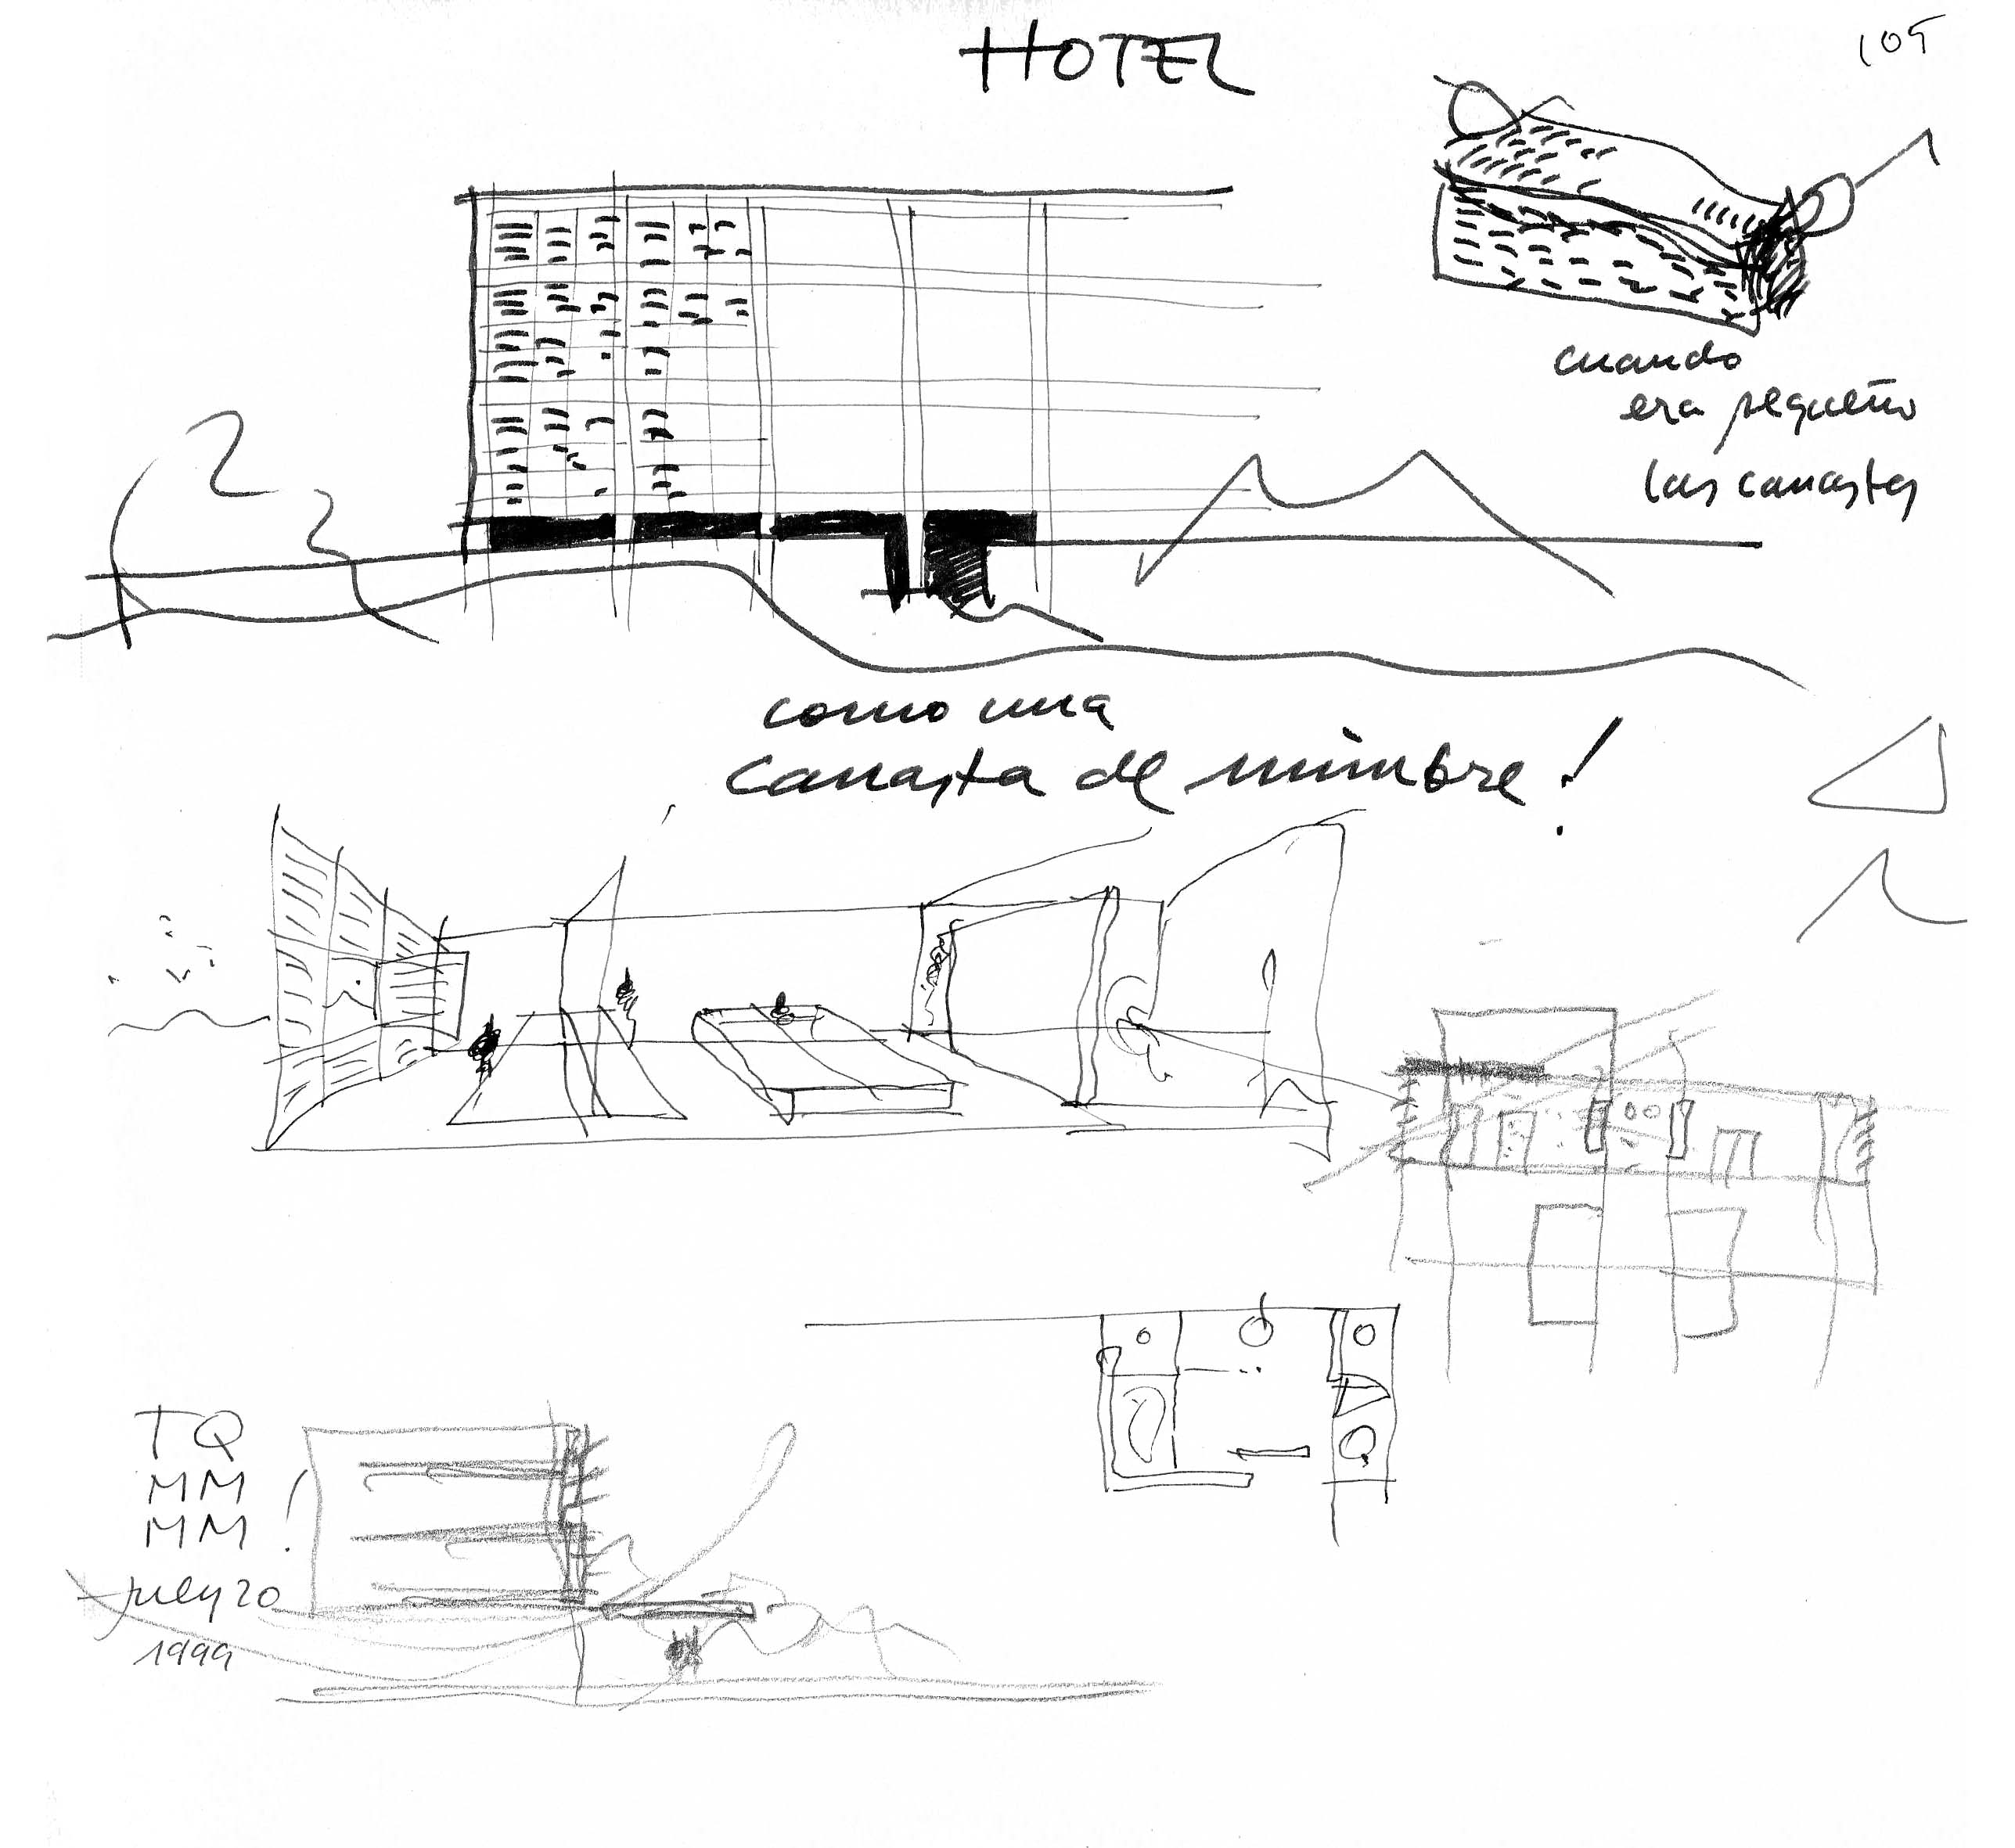 HOTEL
109
cuando
era pequeño
las canastas
como una
canasta de mimbre!
TQ
MM
MM!
july 20
1999